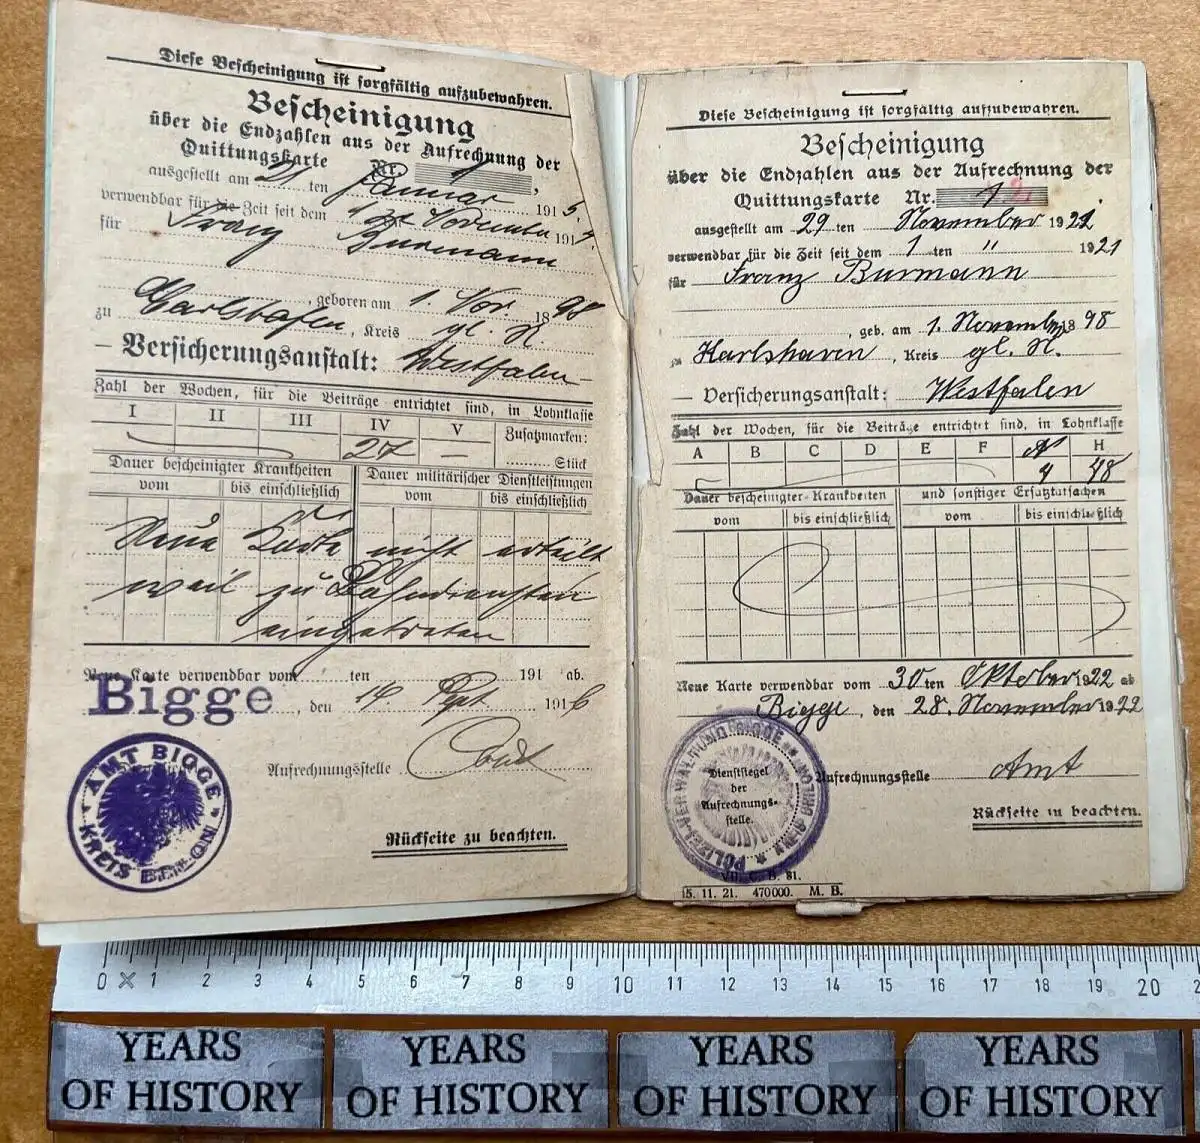 Diese Bescheinigung ist sorgfältig aufzubewahren.
Bescheinigung
über die Endzahlen aus der Aufrechnung der
Quittungskarte Nr. 1,
ausgestellt am 21 ten Januar 1915,
verwendbar für die Zeit seit dem 1ten November 1914,
für Franz Burmann
geboren am 1. Nov. 1898
zu Carlshafen, Kreis gl. N.
— Versicherungsanstalt: Westfalen —
Zahl der Wochen, für die Beiträge entrichtet sind, in Lohnklasse
I II III IV V Zusatzmarken:
27 — Stück
Dauer bescheinigter Krankheiten Dauer militärischer Dienstleistungen
vom bis einschließlich vom bis einschließlich
Neue Karte nicht erteilt
weil zu Bahndiensten
eingetreten
Neue Karte verwendbar vom ten 191 ab.
Bigge, den 14. Sept. 1916
Aufrechnungsstelle
AMT BIGGE
KREIS BRILON
Rückseite zu beachten.
Diese Bescheinigung ist sorgfältig aufzubewahren.
Bescheinigung
über die Endzahlen aus der Aufrechnung der
Quittungskarte Nr. 2
ausgestellt am 29 ten November 1921
verwendbar für die Zeit seit dem 1 ten " 1921
für Franz Burmann
geb. am 1. November 1898
zu Karlshaven, Kreis gl. N.
— Versicherungsanstalt: Westfalen
Zahl der Wochen, für die Beiträge entrichtet sind, in Lohnklasse
A B C D E F H
4 48
Dauer bescheinigter Krankheiten und sonstiger Ersatztatsachen
vom bis einschließlich vom bis einschließlich
Neue Karte verwendbar vom 30 ten Oktober 1922 ab
Bigge, den 28. November 1922
POLIZEIVERWALTUNG BIGGE
Dienstsiegel
der
Aufrechnungs-
stelle.
Aufrechnungsstelle Amt
Rückseite zu beachten.
VII. C. B. 81.
15. 11. 21. 470000. M. B.
0 1 2 3 4 5 6 7 8 9 10 11 12 13 14 15 16 17 18 19 20
YEARS OF HISTORY
YEARS OF HISTORY
YEARS OF HISTORY
YEARS OF HISTORY